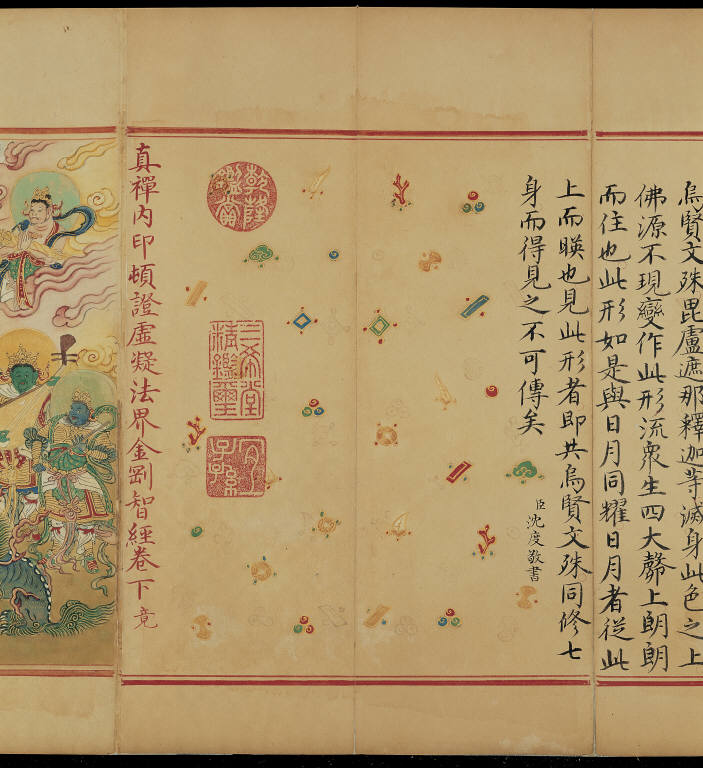 烏賢文殊毘盧遮那釋迦等滅身此色之上
佛源不現變作此形流衆生四大上朗朗
而住也此形如是與日月同耀日月者從此
上而暎也見此形者即共烏賢文殊同修七
身而得見之不可傳矣
臣沈度敬書
乾隆鑑賞
三希堂
精鑑璽
宜子孫
真禪內印頓證虛凝法界金剛智經卷下竟